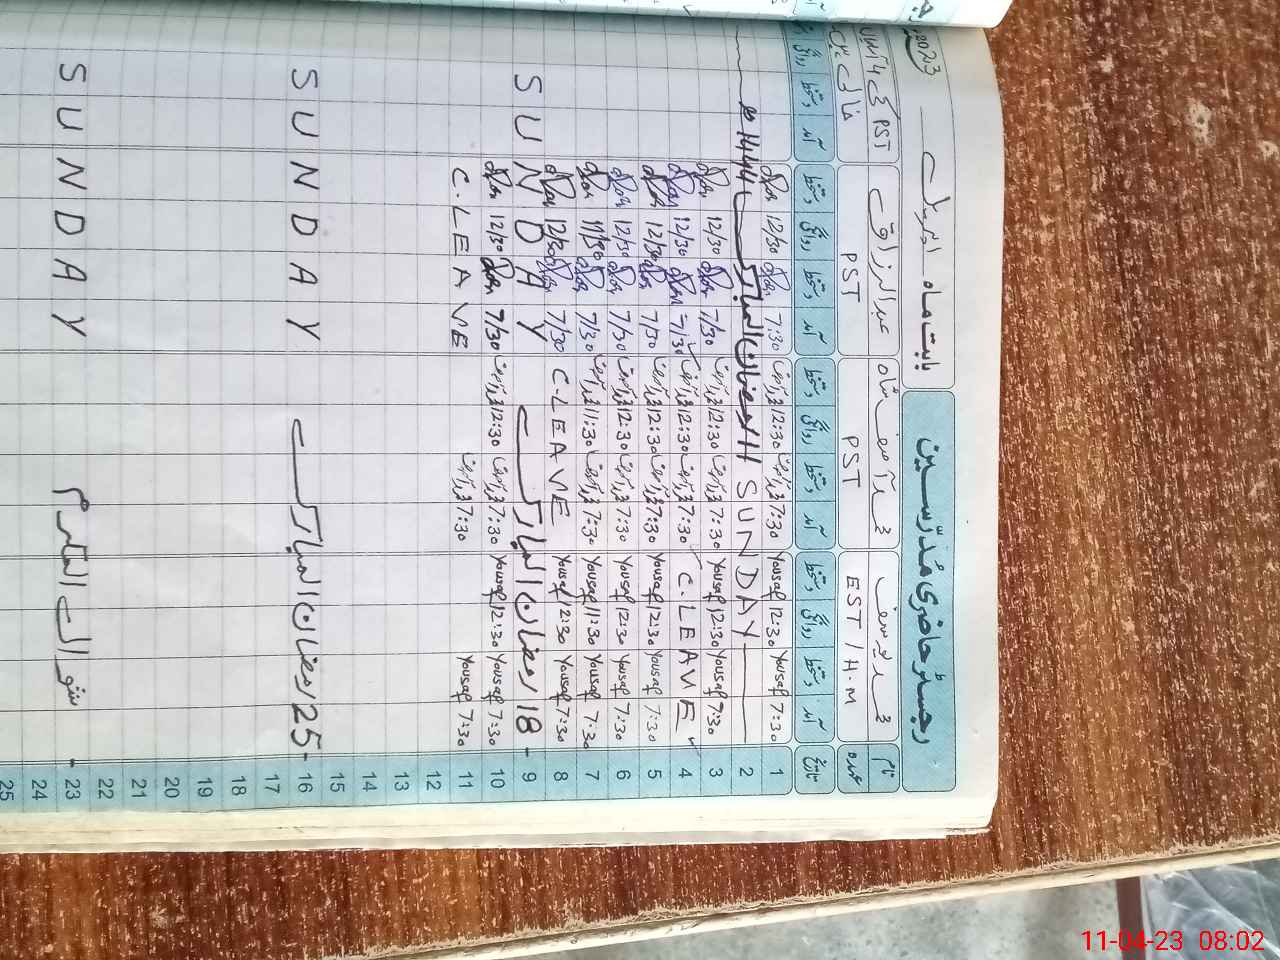 رجسٹر حاضری مُدرّسین بابت ماہ اپریل 2023
نام محمد یوسف محمد آصف شاہ عبدالرزاق
عہدہ EST / H.M PST PST PST خالی
تاریخ آمد دستخط روانگی دستخط آمد دستخط روانگی دستخط آمد دستخط روانگی دستخط آمد دستخط روانگی
1 7:30 Yousaf 12:30 Yousaf 7:30 12:30 7:30 12/30
2 SUNDAY 11 رمضان المبارک
3 7:30 Yousaf 12:30 Yousaf 7:30 12:30 7/30 12/30
4 C.LEAVE 7:30 12:30 7/30 12/30
5 7:30 Yousaf 12:30 Yousaf 7:30 12:30 7/30 12/30
6 7:30 Yousaf 12:30 Yousaf 7:30 12:30 7/30 12/30
7 7:30 Yousaf 11:30 Yousaf 7:30 11:30 7/30 11/30
8 7:30 Yousaf 12:30 Yousaf C-LEAVE 7/30 12/30
9 - 18 رمضان المبارک SUNDAY
10 7:30 Yousaf 12:30 Yousaf 7:30 12:30 7/30 12/30
11 7:30 Yousaf 7:30 C.LEAVE
12
13
14
15
16 - 25 رمضان المبارک SUNDAY
17
18
19
20
21
22
23 - شوال المکرم SUNDAY
24
25
11-04-23 08:02